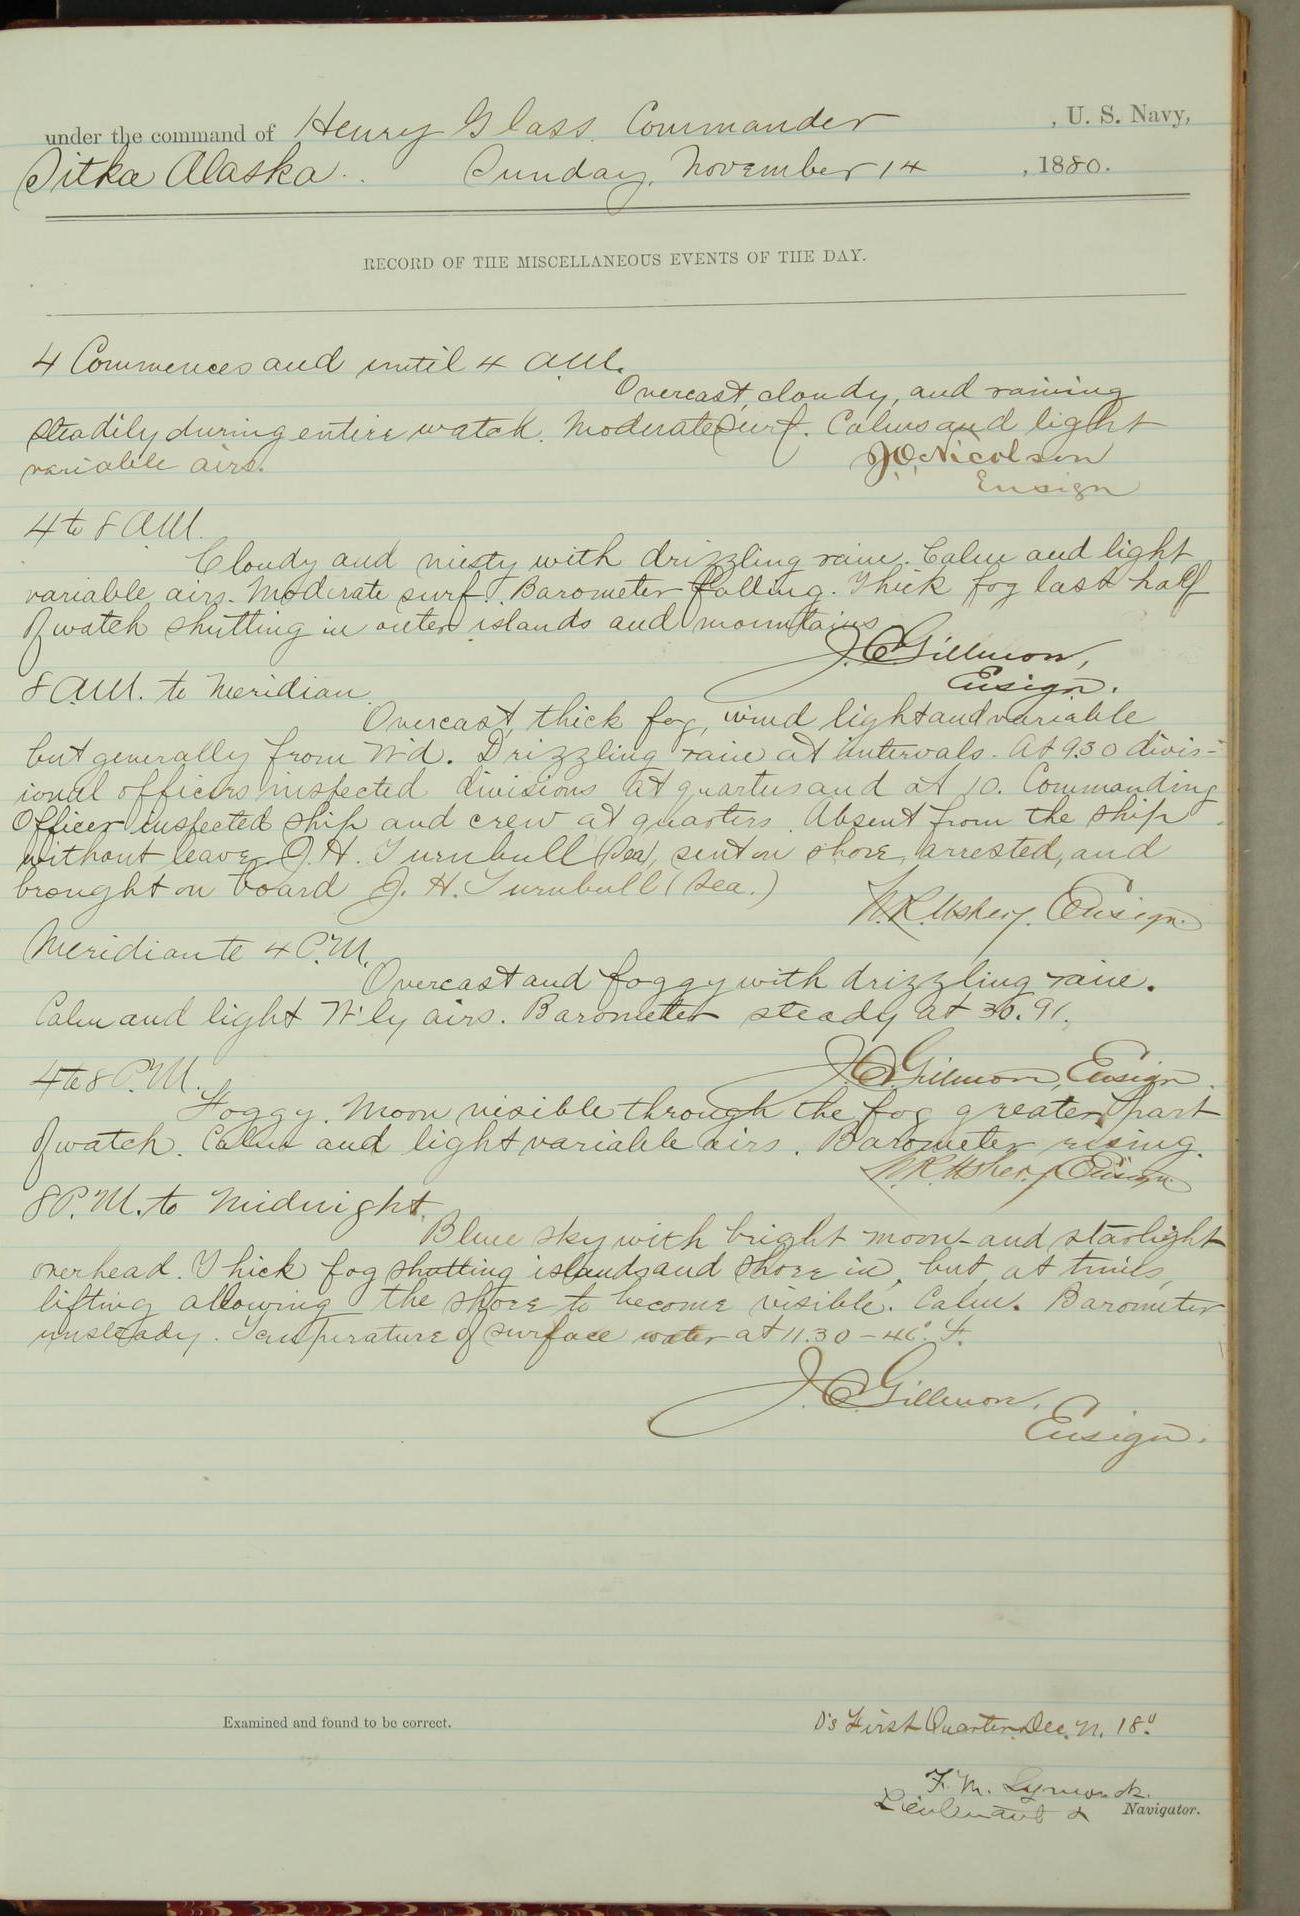 under the command of Henry Glass Commander , U. S. Navy,
Sitka Alaska. Sunday, November 14 , 1880.
RECORD OF THE MISCELLANEOUS EVENTS OF THE DAY.
4 Commences and until 4 A.M.
Overcast, cloudy, and raining
steadily during entire watch. Moderate surf. Calms and light
variable airs. J.O. Nicolson
Ensign
4 to 8 A.M.
Cloudy and misty with drizzling rain. Calm and light
variable airs. Moderate surf. Barometer falling. Thick fog last half
of watch shutting in outer islands and mountains
J.C. Gillmore,
Ensign.
8 A.M. to Meridian
Overcast, thick fog, wind light and variable
but generally from N'd. Drizzling rain at intervals. At 9.30 divis-
ional officers inspected divisions at quarters and at 10. Commanding
Officer inspected ship and crew at quarters. Absent from the ship
without leave J. H. Turnbull (Sea), sent on shore, arrested, and
brought on board J. H. Turnbull (Sea.)
N.R. Usher, Ensign.
Meridian to 4 P.M.
Overcast and foggy with drizzling rain.
Calm and light N'ly airs. Barometer steady at 30.91.
J.C. Gillmore, Ensign.
4 to 8 P.M.
Foggy. Moon visible through the fog greater part
of watch. Calms and light variable airs. Barometer rising.
N.R. Usher, Ensign
8 P.M. to Midnight.
Blue sky with bright moon- and starlight
overhead. Thick fog shutting islands and shore in, but, at times,
lifting allowing the shore to become visible. Calm. Barometer
unsteady. Temperature of surface water at 11.30 - 46° F.
J.C. Gillmore,
Ensign.
Examined and found to be correct.
First Quarter Dec. N. 18°
F. M. Symonds.
Lieutenant & Navigator.